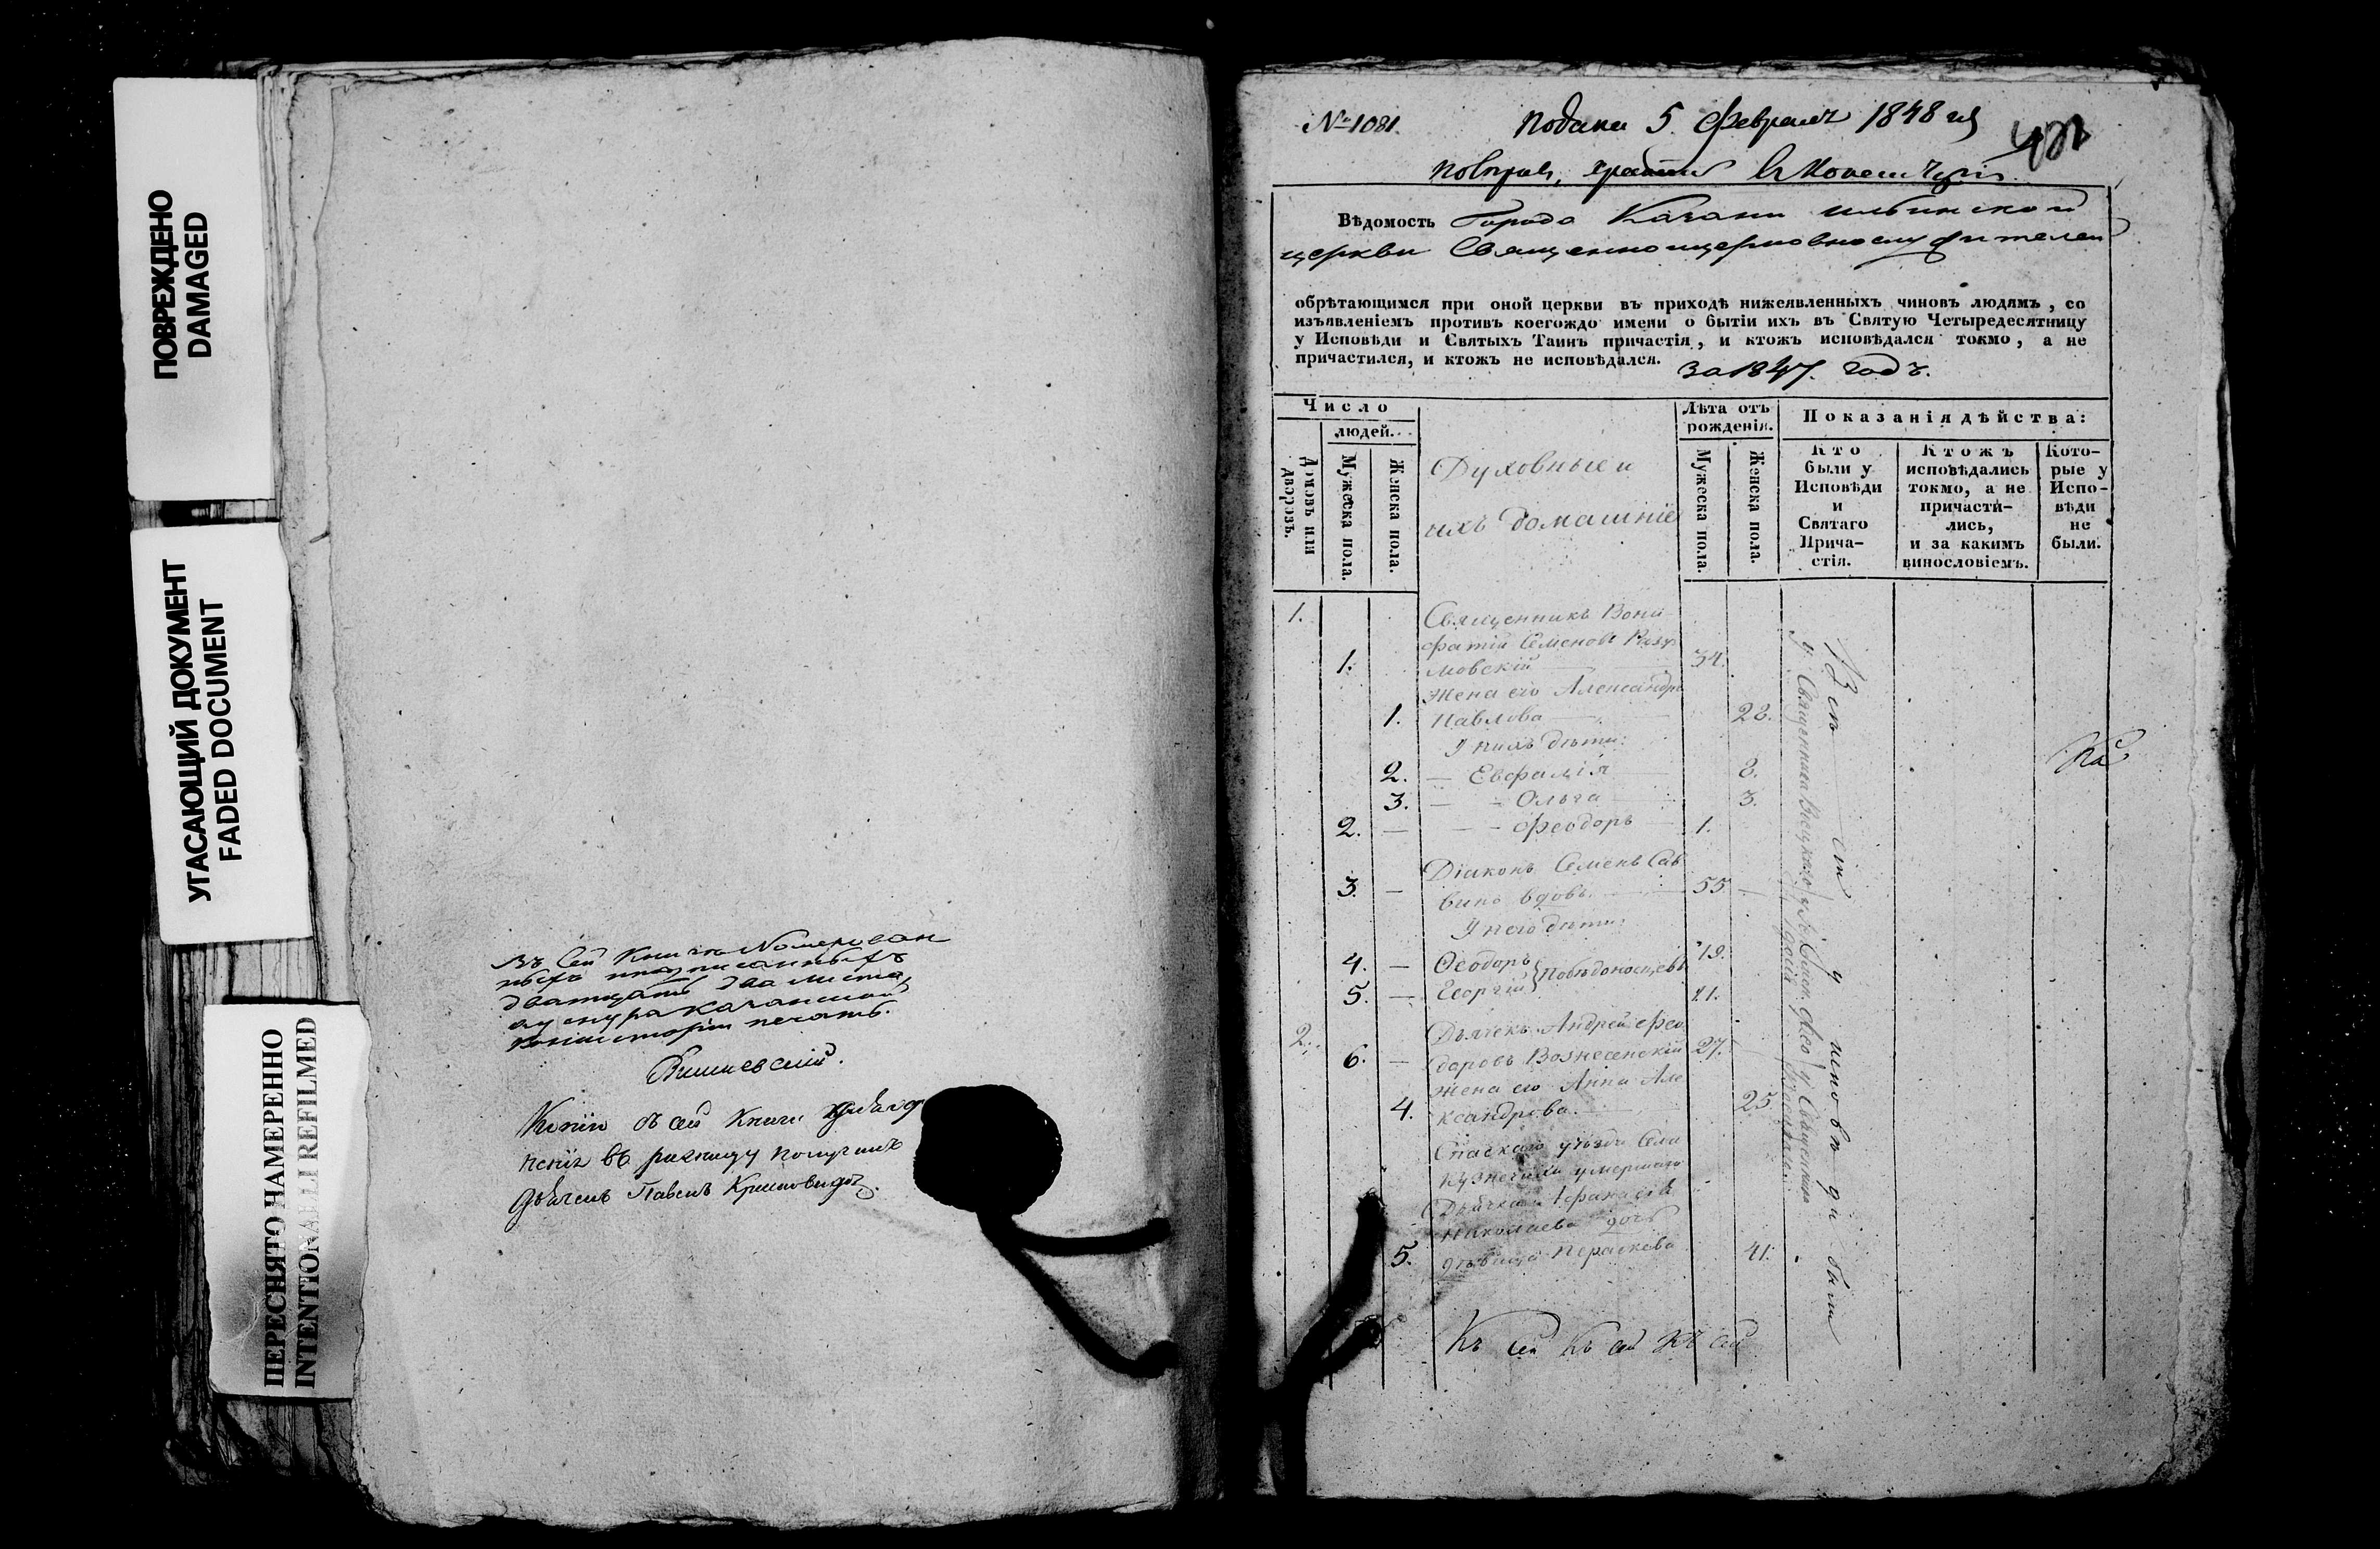 ПОВРЕЖДЕНО
DAMAGED
УГАСАЮЩИЙ ДОКУМЕНТ
FADED DOCUMENT
ПЕРЕСНЯТО НАМЕРЕННО
INTENTIONALLI REFILMED
Въ сей книгѣ номерован
ныхъ
дватцать два листа
печать.
Вишневскій.
Копію съ сей книги
въ получилъ
Павелъ
№ 1081.
Подана 5 Февраля 1848
Вѣдомость Города Казани Ильинской
церкви Священноцерковнослужителей
обрѣтающимся при оной церкви въ приходѣ нижеявленныхъ чиновъ людямъ, со
изъявленіемъ противъ коегождо имени о бытіи ихъ въ Святую Четыредесятницу
у Исповѣди и Святыхъ Таинъ причастія, и ктожъ исповѣдался токмо, а не
причастился, и ктожъ не исповѣдался.
за 1847. годъ.
Число
людей.
Домовъ или
дворовъ.
Мужеска пола.
Женска пола.
Духовные и
ихъ домашніе
Лѣта отъ
рожденія.
Мужеска пола.
Женска пола.
Показанія дѣйства:
Кто
были у
Исповѣди
и
Святаго
Прича-
стія.
Ктожъ
исповѣдались
токмо, а не
причасти-
лись,
и за какимъ
винословіемъ.
Кото-
рые у
Испо-
вѣди
не
были.
1.
Священникъ Вони
1. фатій Семеновъ Разу
мовскій 34.
Жена его Александра
1. Павлова 28.
У нихъ дѣти:
2. — Евфалія 8.
3. — Ольга 3.
2. — Феодоръ 1.
Діаконъ Семенъ Сав
3. — винъ вдовъ 55
У него дѣти:
4. — Ѳеодоръ 19.
Побѣдоносцевы
5. — Георгій 11.
2. Дьячекъ Андрей Фео
6. — доровъ Вознесенскій 27.
Жена его Анна Але
4. ксандрова. 25
Спаскаго уѣзда Села
умершаго
Дьячка
Николаева дочь
5. дѣвица Пераскева 41.
Къ сей Къ сей Къ сей